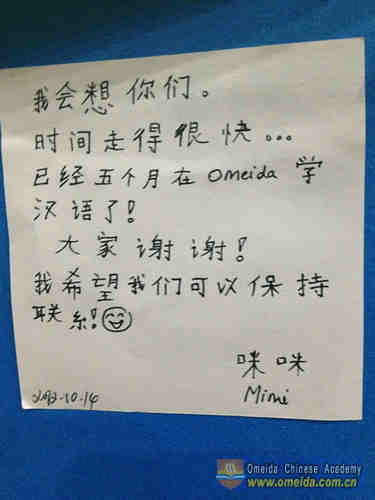 我会想你们。
时间走得很快...
已经五个月在 Omeida 学
汉语了!
大家谢谢!
我希望我们可以保持
联系!
咪咪
Mimi
Omeida Chinese Academy
www.omeida.com.cn